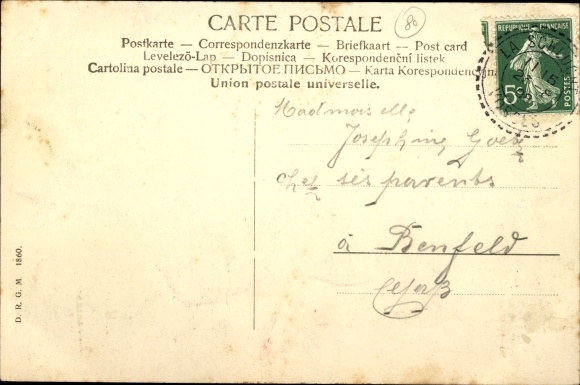 CARTE POSTALE
80
Postkarte — Correspondenzkarte — Briefkaart — Post card
Levelező-Lap — Dopisnica — Korespondenční lístek
Cartolina postale — ОТКРЫТОЕ ПИСЬМО — Karta Korespondencyjna
Union postale universelle.
REPUBLIQUE FRANÇAISE
5c
POSTES
Madmoiselle
Josephine Goetz
chez ses parents
à Benfeld
Elsaß
D. R. G. M. 1860.